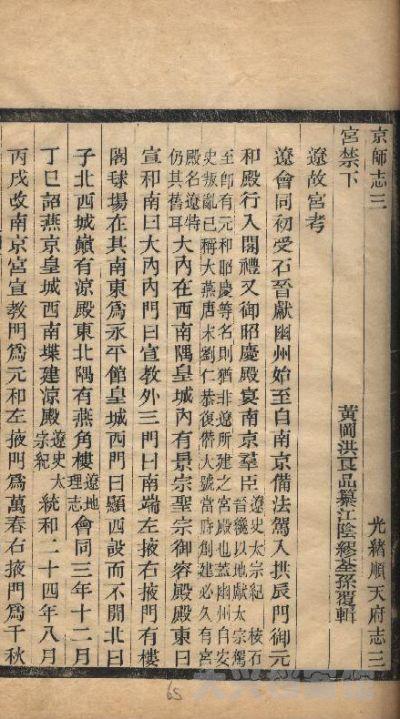 京師志三　光緒順天府志三
宮禁下　黃岡洪良品纂江陰繆荃孫覆輯
遼故宮考
遼會同初受石晉獻幽州始至自南京備法駕入拱辰門御元
和殿行入閣禮又御昭慶殿宴南京羣臣遼史太宗紀　按石晉後以地獻太宗駕
至卽有元和昭慶等名則猶非遼所建之宮殿也蓋幽州自安
史叛亂已稱大燕唐末劉仁恭復僭大號當時創建必久有宮
殿名遼特仍其舊耳大內在西南隅皇城內有景宗聖宗御容殿殿東曰
宣和南曰大內內門曰宣教外三門曰南端左掖右掖門有樓
閣球場在其南東爲永平館皇城西門曰顯西設而不開北曰
子北西城巔有涼殿東北隅有燕角樓遼地理志會同三年十二月
丁巳詔燕京皇城西南堞建涼殿遼史太宗紀統和二十四年八月
丙戌改南京宮宣教門爲元和左掖門爲萬春右掖門爲千秋
65